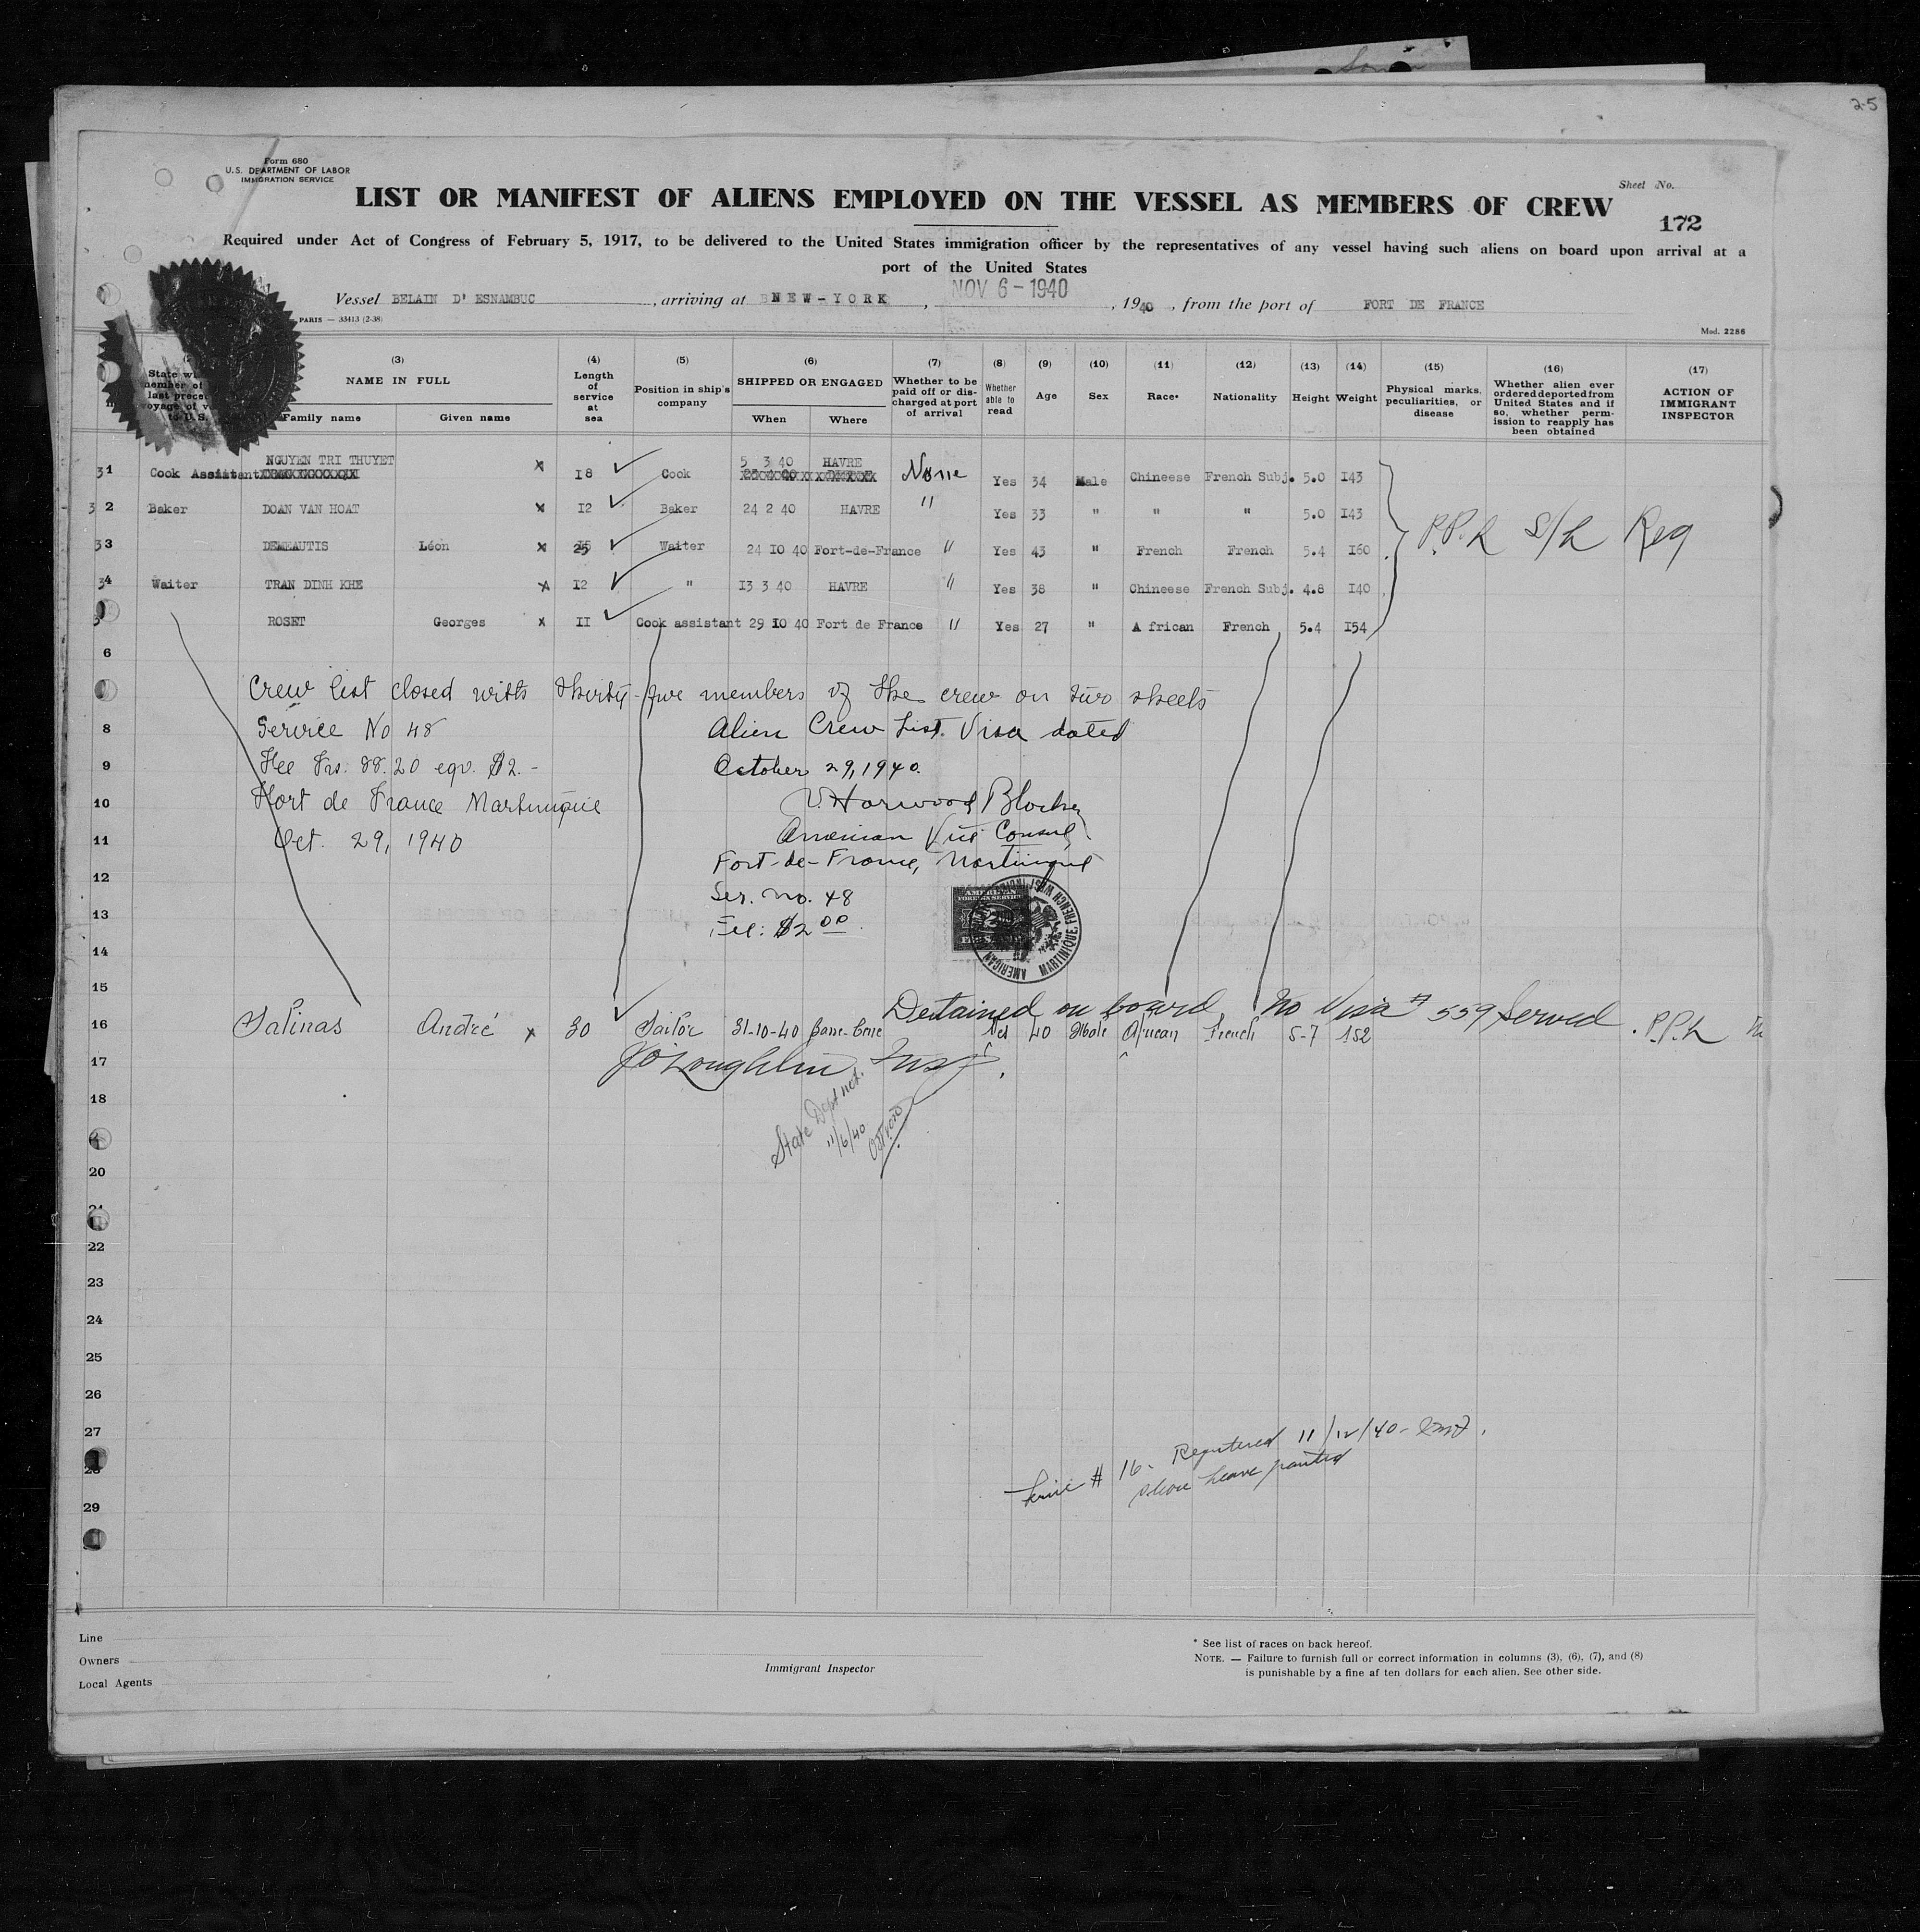 2-5
Form 680
U.S. DEPARTMENT OF LABOR
IMMIGRATION SERVICE
Sheet No.
LIST OR MANIFEST OF ALIENS EMPLOYED ON THE VESSEL AS MEMBERS OF CREW
172
Required under Act of Congress of February 5, 1917, to be delivered to the United States immigration officer by the representatives of any vessel having such aliens on board upon arrival at a
port of the United States
Vessel BELAIN D' ESNAMBUC, arriving at NEW-YORK, NOV 6 - 1940, 1940, from the port of FORT DE FRANCE
PARIS — 33413 (2-38)
Mod. 2286
(3) (4) (5) (6) (7) (8) (9) (10) (11) (12) (13) (14) (15) (16) (17)
NAME IN FULL
Family name Given name
Length of service at sea
Position in ship's company
SHIPPED OR ENGAGED
When Where
Whether to be paid off or discharged at port of arrival
Whether able to read
Age
Sex
Race*
Nationality
Height
Weight
Physical marks, peculiarities, or disease
Whether alien ever ordered deported from United States and if so, whether permission to reapply has been obtained
ACTION OF IMMIGRANT INSPECTOR
31 Cook Assistant NGUYEN TRI THUYET x 18 Cook 5 3 40 HAVRE None Yes 34 Male Chineese French Subj. 5.0 143
32 Baker DOAN VAN HOAT x 12 Baker 24 2 40 HAVRE " Yes 33 " " " 5.0 143
33 DEMEAUTIS Léon x 25 Waiter 24 10 40 Fort-de-France " Yes 43 " French French 5.4 160
P.P.L S/L Reg
34 Waiter TRAN DINH KHE x 12 " 13 3 40 HAVRE " Yes 38 " Chineese French Subj. 4.8 140
3 ROSET Georges x 11 Cook assistant 29 10 40 Fort de France " Yes 27 " A frican French 5.4 154
6
Crew list closed with thirty-five members of the crew on two sheets
8 Service No 48
Alien Crew List. Visa dated
9 Fee Frs: 88.20 eqv. $2.-
October 29, 1940.
10 Fort de France Martinique
V. Harwood Blocker
11 Oct. 29, 1940
American Vice Consul,
Fort-de-France, Martinique
12
Ser. No. 48
13
Fee: $2.00
AMERICAN
FOREIGN SERVICE
AMERICAN MARTINIQUE, FRENCH WEST INDIES
14
15
Detained on board No Visa # 559 Served. P.P.L
16 Salinas André x 30 Sailor 31-10-40 Yes 40 Male African French 5-7 152
17 J O'Loughlin Insp.
18
State Dept not.
11/6/40
20
21
22
23
24
25
26
27
Line # 16- Registered 11/12/40-
Shore Leave granted
28
29
Line
Owners
Local Agents
Immigrant Inspector
* See list of races on back hereof.
NOTE. — Failure to furnish full or correct information in columns (3), (6), (7), and (8)
is punishable by a fine af ten dollars for each alien. See other side.